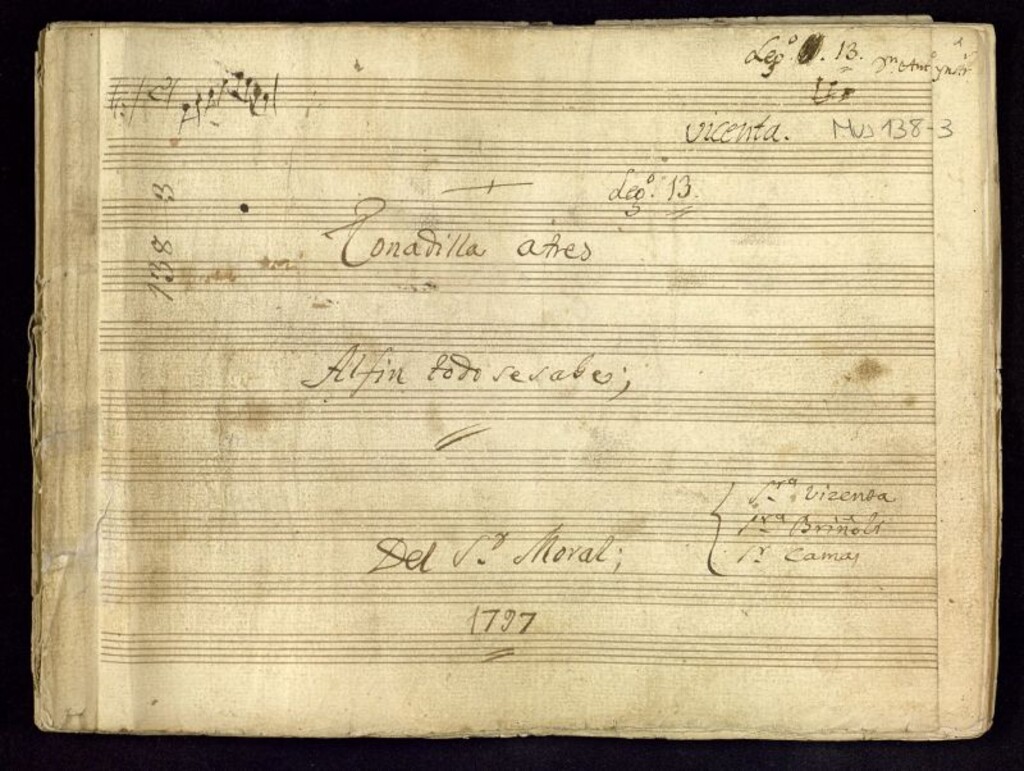 Legº. 13.
vicenta. Mus 138-3
Legº. 13.
138 3
Tonadilla atres
Al fin todo se sabe;
Sra Vizenta
Sra Briñoli
Sr Camas
Del Sr. Moral;
1797